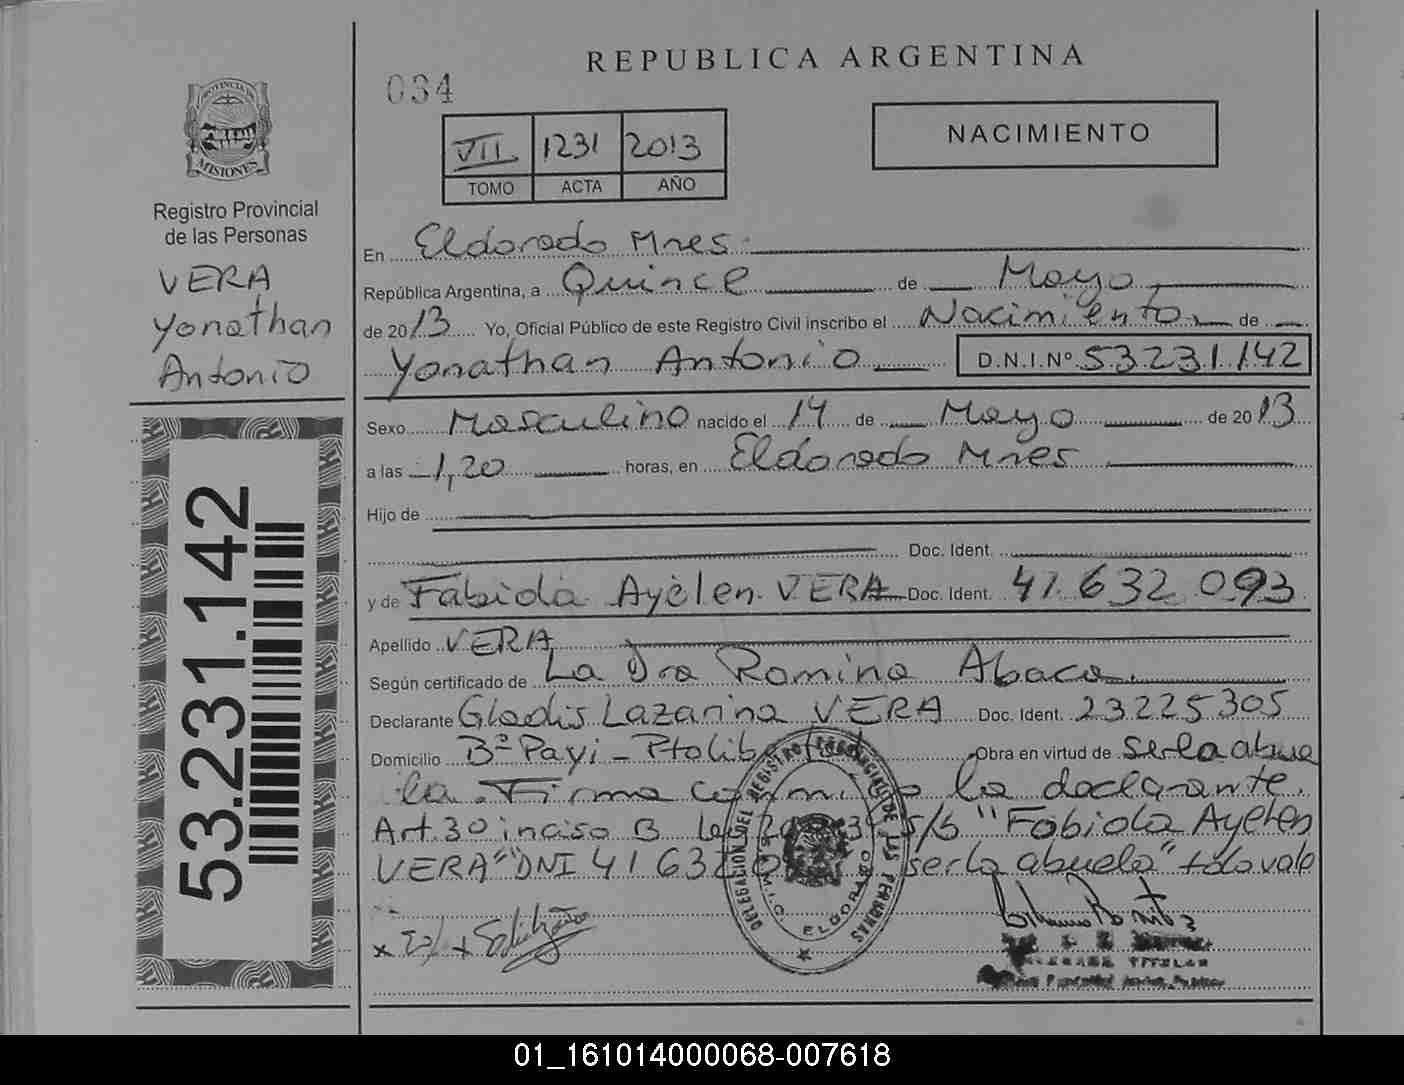 REPUBLICA ARGENTINA
034
PROVINCIA DE
MISIONES
Registro Provincial
de las Personas
VERA
Yonathan
Antonio
53.231.142
VII 1231 2013
TOMO ACTA AÑO
NACIMIENTO
En Eldorado Mnes.
República Argentina, a Quince de Mayo
de 2013 Yo, Oficial Público de este Registro Civil inscribo el Nacimiento de
Yonathan Antonio D.N.I.Nº 53231142
Sexo Masculino nacido el 14 de Mayo de 2013
a las 1,20 horas, en Eldorado Mnes
Hijo de
Doc. Ident.
y de Fabiola Ayelen VERA Doc. Ident. 41.632.093
Apellido VERA
Según certificado de La Dra Romina Abaca
Declarante Gladis Lazarina VERA Doc. Ident. 23225305
Domicilio Bº Payi - Pto Lib Obra en virtud de ser la abue
la. Firma la declarante.
Art. 30 inciso B s/b "Fabiola Ayelen
VERA" "DNI 41 632 ser la abuela" todo vale
DELEGACION DEL REGISTRO PROVINCIAL DE LAS PERSONAS
ELDORADO
TITULAR
01_161014000068-007618